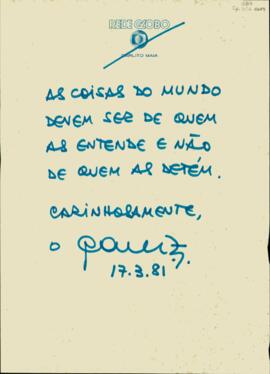 REDE GLOBO
CARLITO MAIA
AS COISAS DO MUNDO
DEVEM SER DE QUEM
AS ENTENDE E NÃO
DE QUEM AS DETÉM.
CARINHOSAMENTE,
O
17.3.81